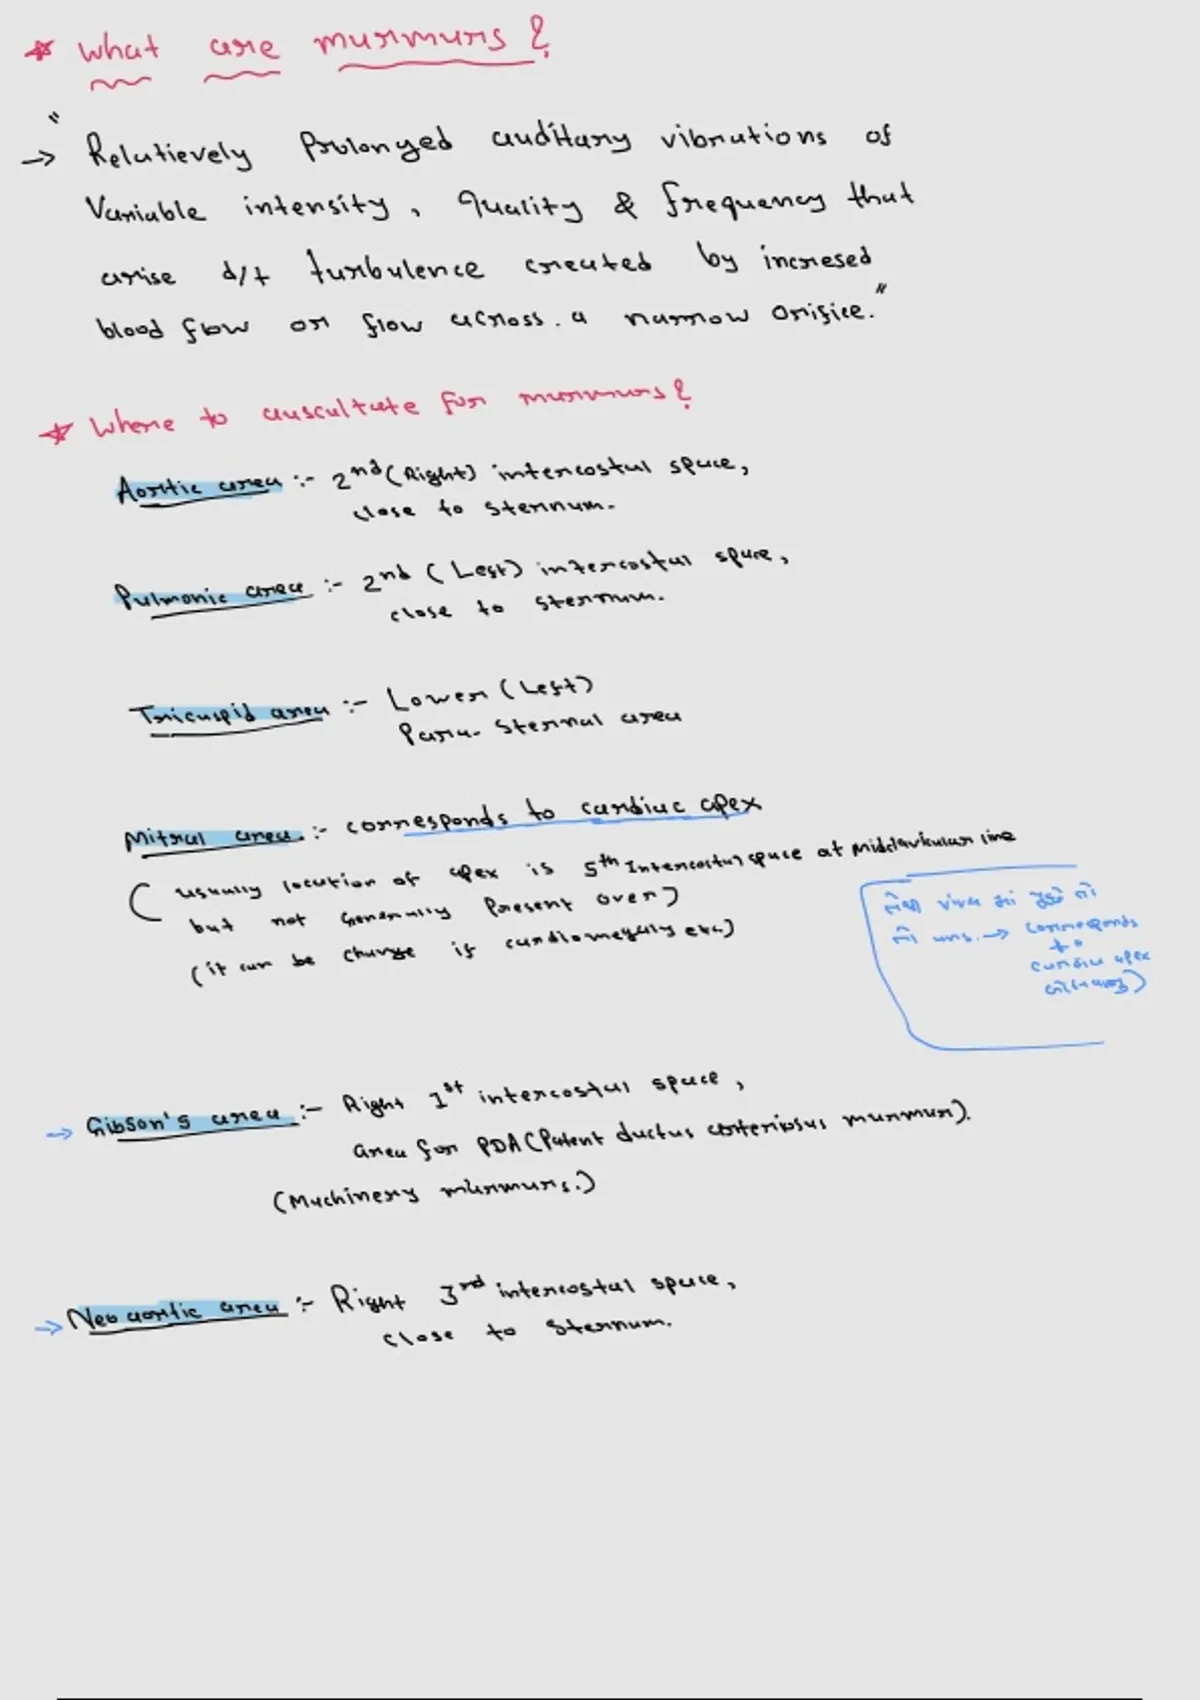 * What are murmurs?
"
→ Relatievely Prolonged auditary vibrations of
Variable intensity, Quality & frequency that
arise d/t turbulence created by incresed
blood flow or flow across. a narrow orifice."
* Where to auscultate for murmurs?
Aortic area :- 2nd (Right) intercostal space,
close to sternum.
Pulmonic area :- 2nd (Left) intercostal space,
close to sternum.
Tricuspid area :- Lower (Left)
Para- Sternal area
Mitral area. :- corresponds to cardiac apex
( usually location of apex is 5th Intercostal space at midclavicular line
but not Generally Present over)
(it can be change if cardiomegaly etc.)
viva
ans. → corresponds
to
cardiac apex
→ Gibson's area :- Right 1st intercostal space,
area for PDA (Patent ductus arteriosus murmur).
(Machinery murmurs.)
→ Neo aortic area :- Right 3rd intercostal space,
close to Sternum.